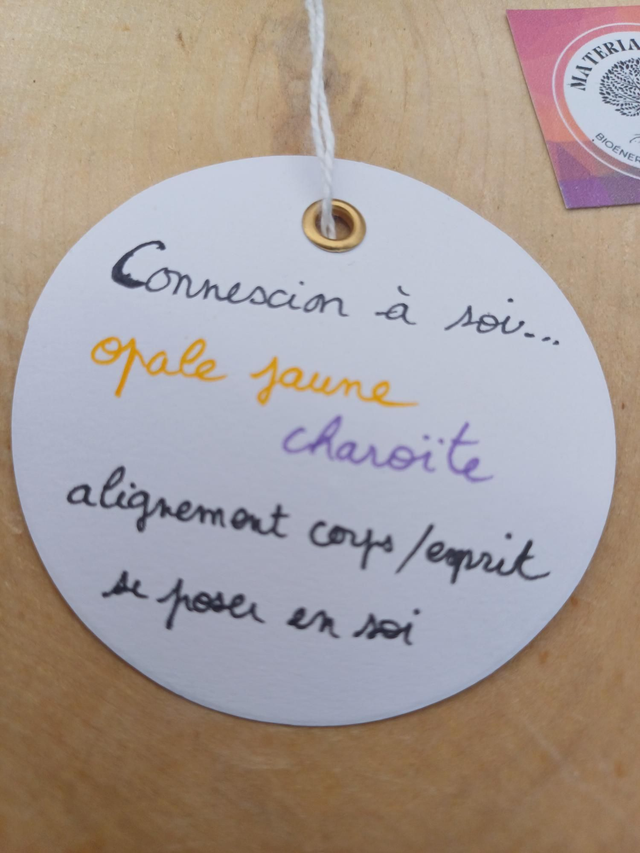 Connexion à soi...
opale jaune
charoïte
alignement corps/esprit
se poser en soi
MATERIA
BIOENER